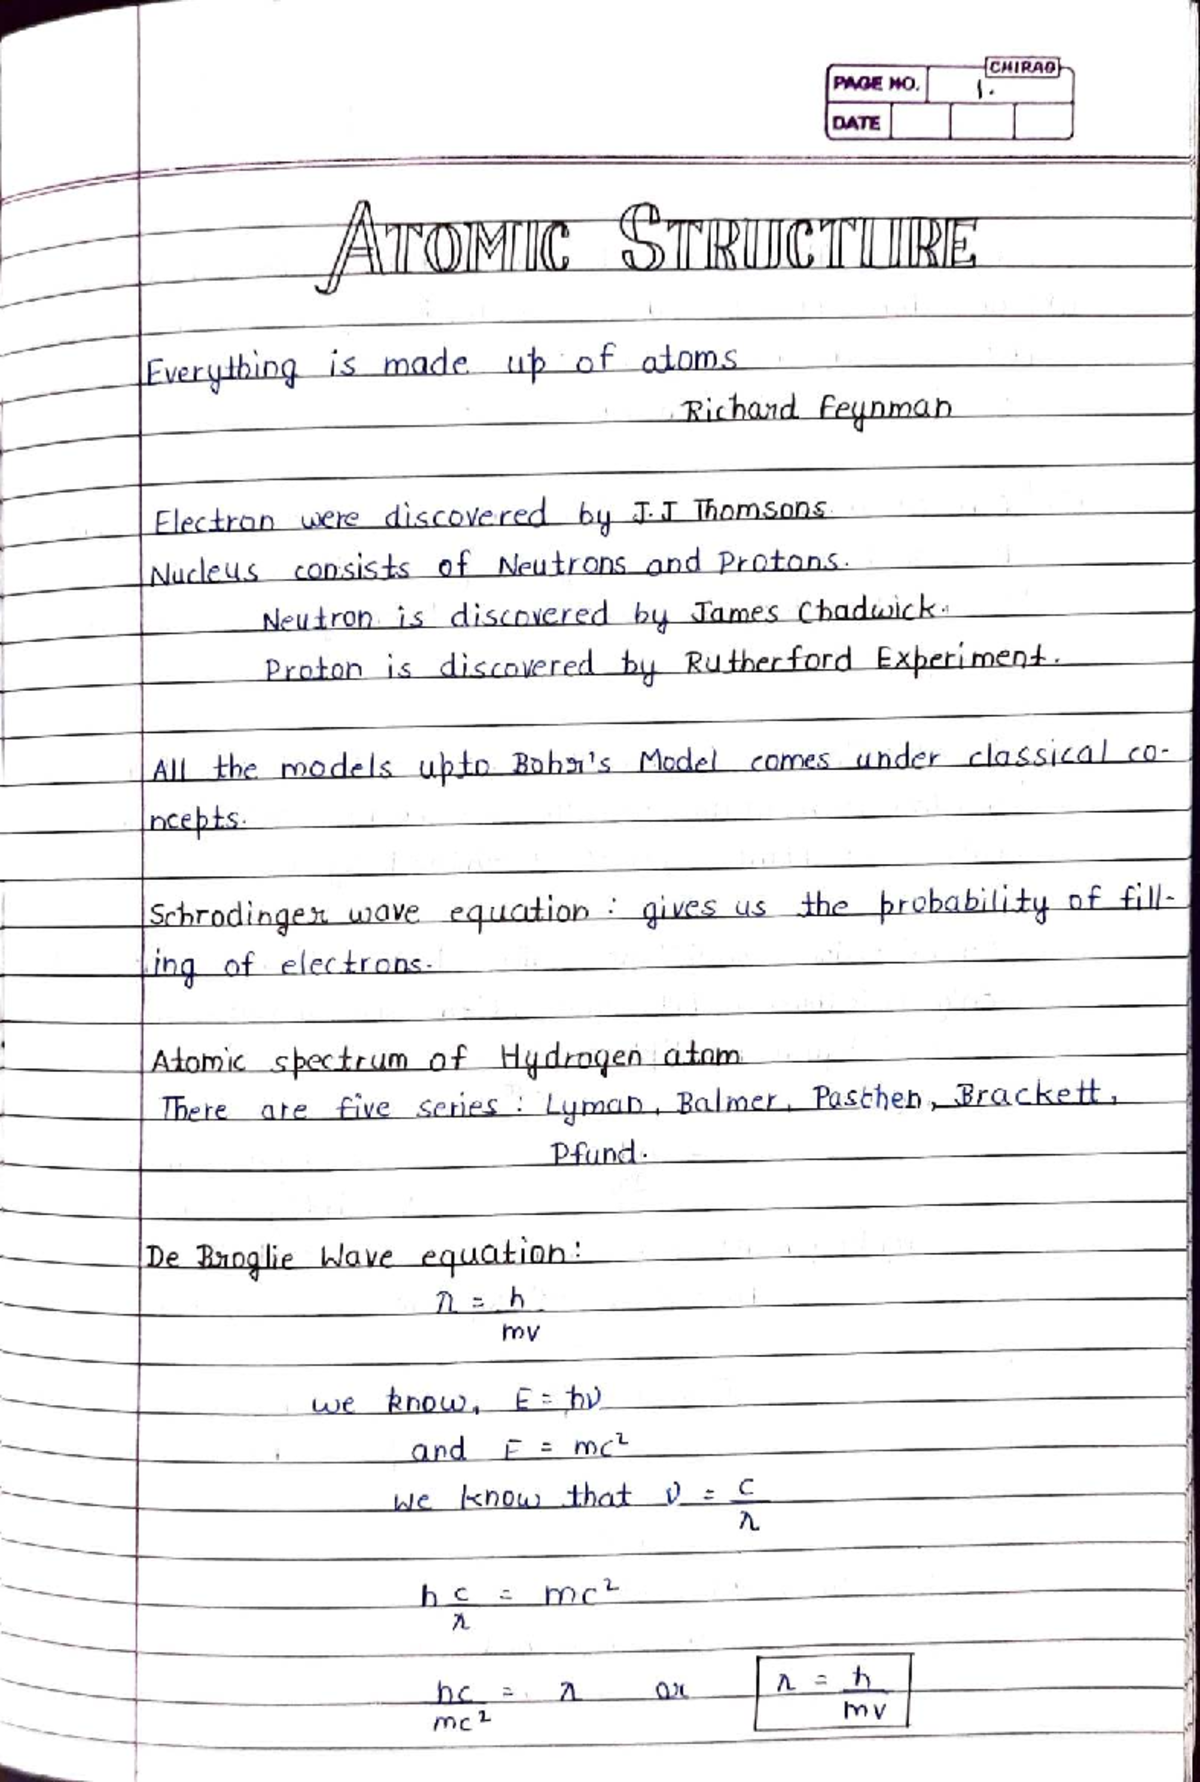 CHIRAG
PAGE NO. 1.
DATE
ATOMIC STRUCTURE
Everything is made up of atoms
Richard Feynman
Electron were discovered by J.J Thomsons
Nucleus consists of Neutrons and Protons.
Neutron is discovered by James Chadwick.
Proton is discovered by Rutherford Experiment.
All the models upto Bohr's Model comes under classical co-
ncepts.
Schrodinger wave equation : gives us the probability of fill-
ing of electrons.
Atomic spectrum of Hydrogen atom
There are five series : Lyman, Balmer, Paschen, Brackett,
Pfund.
De Broglie Wave equation:
λ = h
mv
we know, E = hν
and E = mc²
we know that ν = c
λ
h c = mc²
λ
hc = λ or λ = h
mc² mv